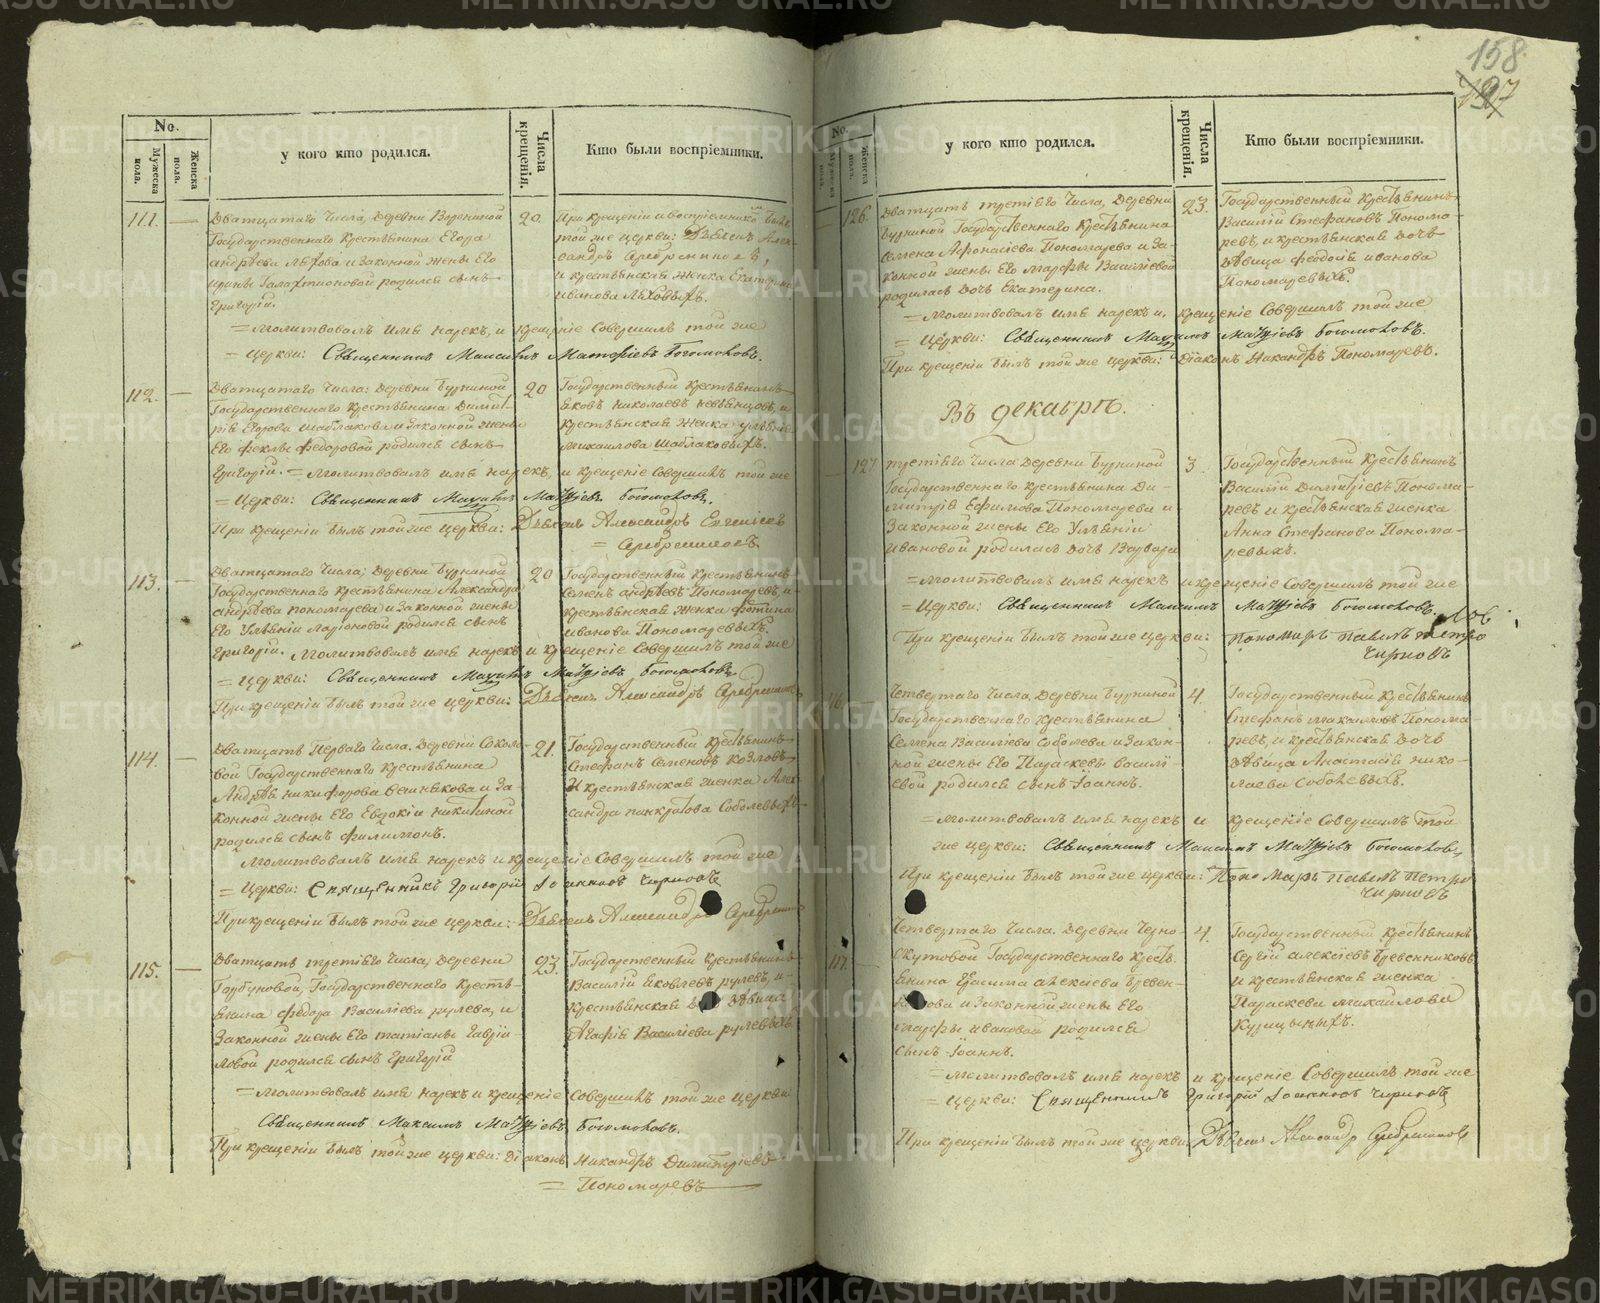 158
No.
Мужеска пола.
Женска пола.
у кого кто родился.
Числа крещенія.
Кто были воспріемники.
111.
Дватцатаго Числа, Деревни
Государственнаго Крестьянина Егора
Андрѣева Ляхова и Законной жены Его
Ирины Галактионовой родился сынъ
Григорій.
20.
При крещеніи и воспріемникомъ былъ
той же церкви: Дьячекъ Алек-
сандръ
и крестьянская женка Екатерина
Иванова Ляховыхъ.
= Молитвовалъ имя нарекъ, и крещеніе Совершилъ той же
= Церкви: Священникъ Максимъ Матфіевъ Богомоловъ.
112.
Дватцатаго Числа: Деревни Буркиной
Государственнаго Крестьянина Димит-
рія Егорова Шаблакова и Законной жены
Его Феклы Федоровой родился сынъ
20
Государственный Крестьянинъ
Яковъ Николаевъ и
Крестьянская женка
Михаилова Шаблаковыхъ.
Григорій. = Молитвовалъ имя нарекъ, и крещеніе Совершилъ той же
= Церкви: Священникъ Максимъ Матфіевъ Богомоловъ.
При крещеніи былъ той же церкви: Дьячекъ Александръ
113.
Дватцатаго Числа; Деревни Буркиной
Государственнаго Крестьянина Александра
Андрѣева Пономарева и Законной жены
Его Уліяніи Ларіоновой родился сынъ
20
Государственный Крестьянинъ
Семенъ Андрѣевъ Пономаревъ, и
крестьянская женка Фотина
Иванова Пономаревыхъ.
Григорій. Молитвовалъ имя нарекъ и крещеніе Совершилъ той же
= Церкви: Священникъ Максимъ Матфіевъ Богомоловъ
При крещеніи былъ той же церкви: Дьячекъ Александръ
114.
Дватцать Перваго Числа. Деревни Соколо-
вой Государственнаго Крестьянина
Андрѣя Никифорова и За-
конной жены Его Евдокіи Никитиной
родился сынъ Филимонъ.
21.
Государственный Крестьянинъ
Стефанъ Семеновъ Козловъ
И крестьянская женка Алек-
сандра Панкратова Соболевыхъ
Молитвовалъ имя нарекъ и крещеніе Совершилъ той же
= Церкви: Священникъ Григорій Іоанновъ Чирковъ
При крещеніи былъ той же церкви: Дьячекъ Александръ
115.
Дватцать третіяго Числа, Деревни
Горбуновой, Государственнаго Кресть-
янина Федора Василіева Рулева, и
Законной жены Его Татіаны Гаврii-
ловой родился сынъ Григорій
23.
Государственный Крестьянинъ
Василій Яковлевъ Рулевъ, и
Крестьянская дѣвица
Агафія Василіева Рулевыхъ
= Молитвовалъ имя нарекъ и крещеніе Совершилъ той же церкви
Священникъ Максимъ Матфіевъ Богомоловъ.
При крещеніи былъ той же церкви: Діаконъ Никандръ Димитріевъ
= Пономаревъ
No.
Мужеска пола.
Женска пола.
у кого кто родился.
Числа крещенія.
Кто были воспріемники.
126.
Дватцать третіяго Числа, Деревни
Буркиной Государственнаго Крестьянина
Семена Афонасіева Пономарева и За-
конной жены Его Марфы Василіевой
родилась дочь Екатерина.
23.
Государственный Крестьянинъ
Василій Стефановъ Понома-
ревъ, и крестьянская дочь
дѣвица Феодосія Иванова
Пономаревыхъ.
= Молитвовалъ имя нарекъ и, крещеніе Совершилъ той же
= Церкви: Священникъ Максимъ Матфіевъ Богомоловъ.
При крещеніи былъ той же церкви: Діаконъ Никандръ Пономаревъ.
Въ декабрѣ.
127
третіяго Числа Деревни Буркиной
Государственнаго крестьянина Ди-
митрія Ефимова Пономарева и
Законной жены Его Уліяніи
Ивановой родилась дочь Варвара
3.
Государственный Крестьянинъ
Василій Димитріевъ Понома-
ревъ и крестьянская женка
Анна Стефанова Понома-
ревыхъ.
= Молитвовалъ имя нарекъ и крещеніе Совершилъ той же
= Церкви: Священникъ Максимъ Матфіевъ Богомоловъ.
При крещеніи былъ той же церкви: Пономарь Павелъ Петро
Чирковъ
116
Четвертаго Числа. Деревни Буркиной
Государственнаго Крестьянина
Семена Василіева Соболева и Закон-
ной жены Его Параскевы Василі-
евой родился сынъ Іоаннъ.
4.
Государственный Крестьянинъ
Стефанъ Максимовъ Понома-
ревъ, и крестьянская дочь
дѣвица Анастасія Нико-
лаева Соболевыхъ.
= Молитвовалъ имя нарекъ и крещеніе Совершилъ той
же церкви: Священникъ Максимъ Матфіевъ Богомоловъ
При крещеніи былъ той же церкви: Пономарь Павелъ Петро
Чирковъ
117.
Четвертаго Числа. Деревни Черно-
скутовой Государственнаго Кресть-
янина и Законной жены Его
Марфы Ивановой родился
сынъ Іоаннъ.
4.
Государственный Крестьянинъ
Сергій Алексіевъ Бревенниковъ
и крестьянская женка
Параскева Михаилова
Курицыныхъ.
= Молитвовалъ имя нарекъ и крещеніе Совершилъ той же
= церкви: Священникъ Григорій Іоанновъ Чирковъ
При крещеніи былъ той же церкви: Дьячекъ Александръ
METRIKI.GASO-URAL.RU